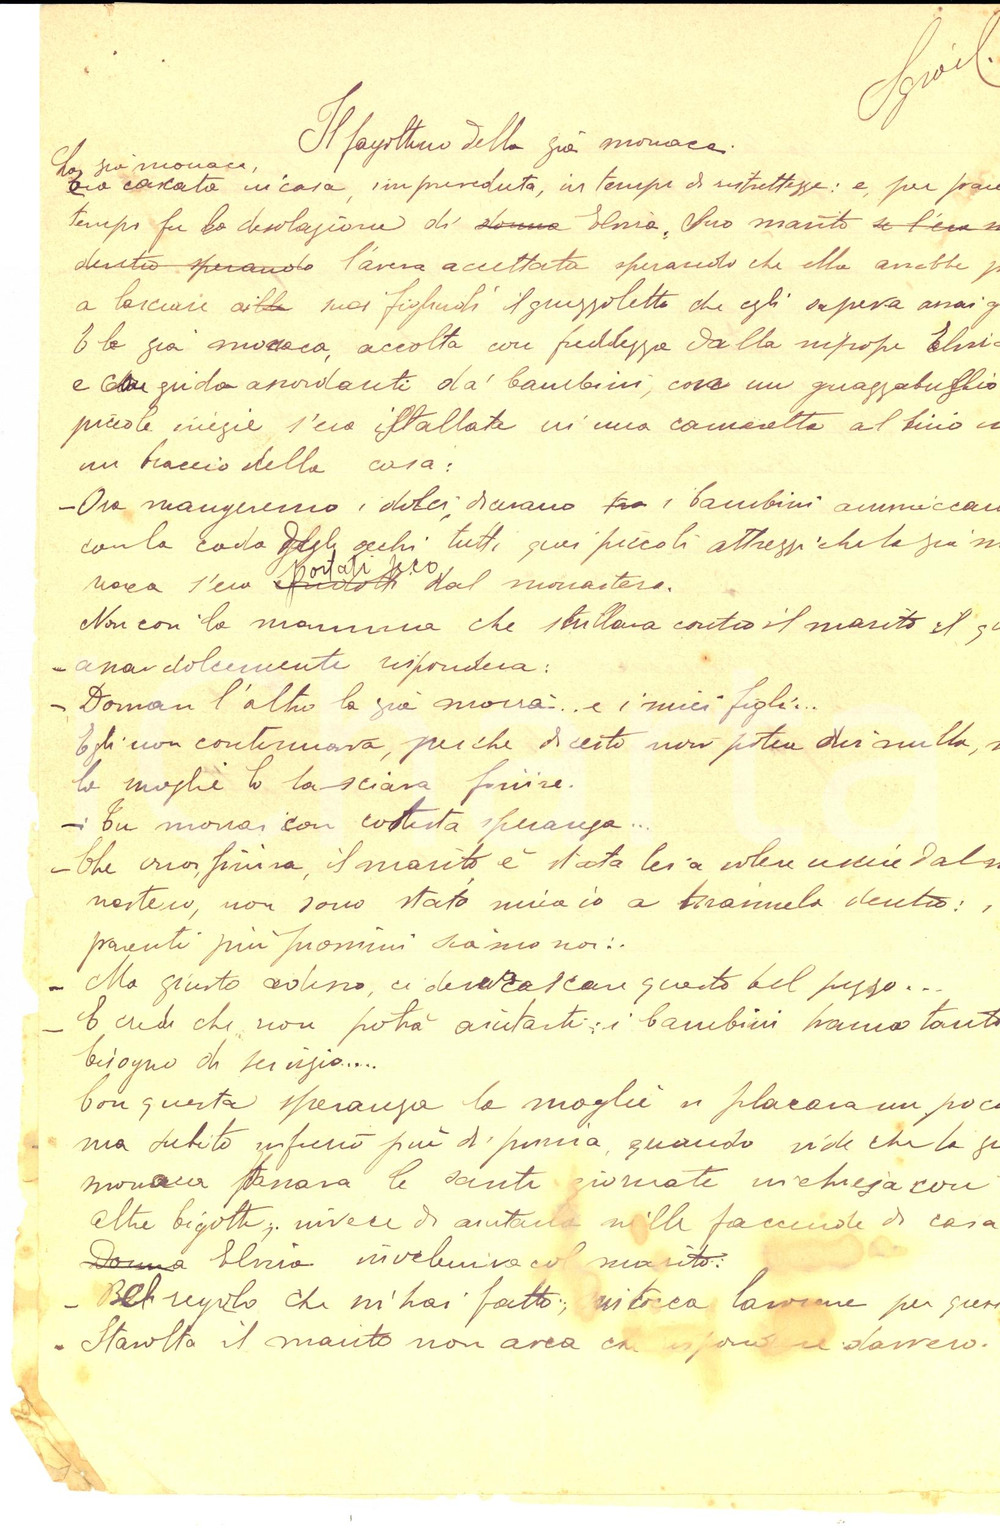 Il fagottino della già monaca.
La già monaca,
era cascata in casa, impreveduta, in tempi di ristrettezze: e, per
tempo fu la desolazione di donna Elvira. Suo marito se l'era
dentro sperando l'aveva accettata sperando che ella avrebbe
a lasciare alla suoi figliuoli il gruzzoletto che egli sapeva
E la già monaca, accolta con freddezza dalla nipote
e grida assordanti da' bambini, con un guazzabuglio
piccole inezie s'era istallata in una cameretta al
un braccio della casa:
- Ora mangeremo i dolci, dicevano tra i bambini
con la coda degli occhi tutti quei piccoli attrezzi che la già
portati seco
naca s'era dal monastero.
Non così la mamma che strillava contro il marito il
- dolcemente rispondeva:
- Doman l'altro la già morrà... e i miei figli...
Egli non continuava, perché di certo non potea dir nulla,
la moglie lo lasciava finire.
- Tu morrai con cotesta speranza...
- Che vuoi, finiva, il marito, è stata lei a voler uscire dal
nastero, non sono stato mica io a dentro:
parenti più prossimi siamo noi..
- Ma giusto addosso, ci doveva cascare questo bel pezzo...
- E credi che non potrà aiutarti; i bambini hanno tanto
bisogno di servizio.....
Con questa speranza la moglie si placava un poco
ma subito infuriò più di prima, quando vide che la
monaca passava le sante giornate in chiesa con
altre bigotte, invece di aiutarla nelle faccende di casa
Donna Elvira inveleniva col marito:
- Bel regalo che m'hai fatto; mi tocca lavorare per
- Stavolta il marito non avea che rispondere davvero.